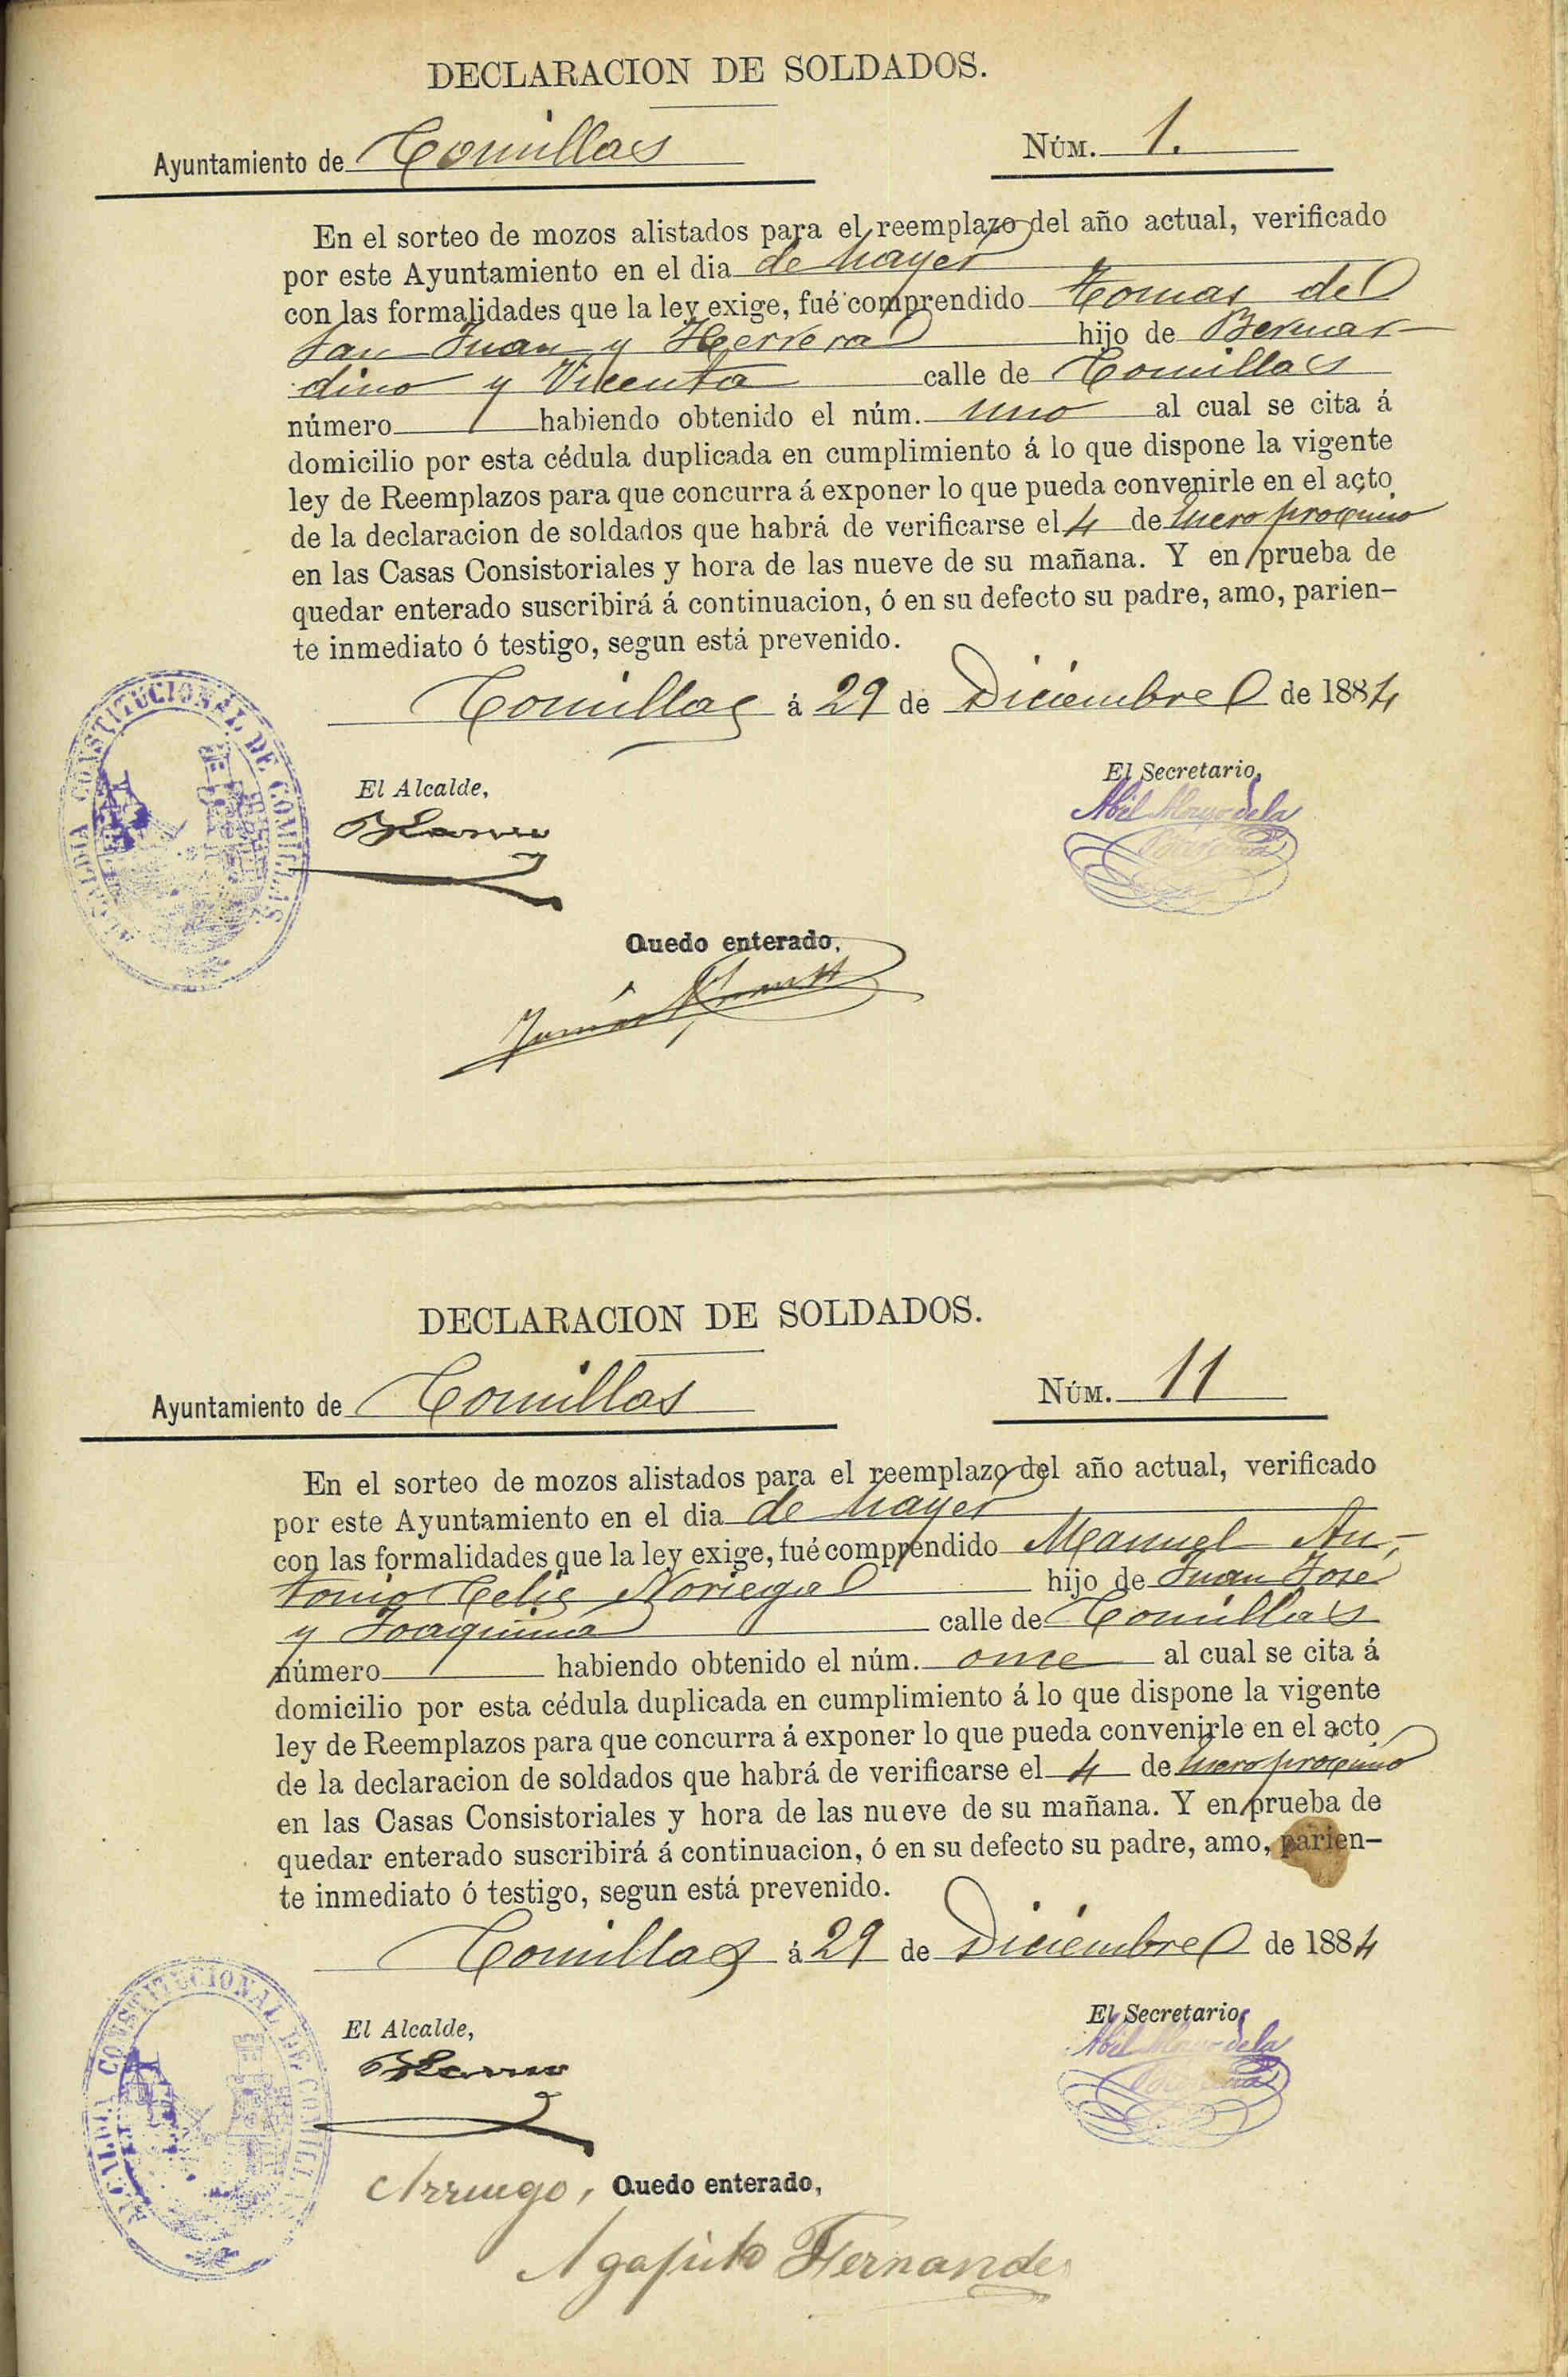 DECLARACION DE SOLDADOS.
Ayuntamiento de Comillas NÚM. 1.
En el sorteo de mozos alistados para el reemplazo del año actual, verificado
por este Ayuntamiento en el dia de hayer
con las formalidades que la ley exige, fué comprendido Tomas de
San Juan y Herrera hijo de Bernar-
dino y Vicenta calle de Comillas
número habiendo obtenido el núm. uno al cual se cita á
domicilio por esta cédula duplicada en cumplimiento á lo que dispone la vigente
ley de Reemplazos para que concurra á exponer lo que pueda convenirle en el acto
de la declaracion de soldados que habrá de verificarse el 4 de Enero proximo
en las Casas Consistoriales y hora de las nueve de su mañana. Y en prueba de
quedar enterado suscribirá á continuacion, ó en su defecto su padre, amo, parien-
te inmediato ó testigo, segun está prevenido.
Comillas á 29 de Diciembre de 1884
ALCALDIA CONSTITUCIONAL DE COMILLAS
El Alcalde, El Secretario,
Abel de la
Quedo enterado,
DECLARACION DE SOLDADOS.
Ayuntamiento de Comillas NÚM. 11
En el sorteo de mozos alistados para el reemplazo del año actual, verificado
por este Ayuntamiento en el dia de hayer
con las formalidades que la ley exige, fué comprendido Manuel An-
tonio Celis Noriega hijo de Juan Jose
y Joaquina calle de Comillas
número habiendo obtenido el núm. once al cual se cita á
domicilio por esta cédula duplicada en cumplimiento á lo que dispone la vigente
ley de Reemplazos para que concurra á exponer lo que pueda convenirle en el acto
de la declaracion de soldados que habrá de verificarse el 4 de Enero proximo
en las Casas Consistoriales y hora de las nueve de su mañana. Y en prueba de
quedar enterado suscribirá á continuacion, ó en su defecto su padre, amo, parien-
te inmediato ó testigo, segun está prevenido.
Comillas á 29 de Diciembre de 1884
ALCALDIA CONSTITUCIONAL DE COMILLAS
El Alcalde, El Secretario,
Abel de la
Arruego, Quedo enterado,
Agapito Fernandez